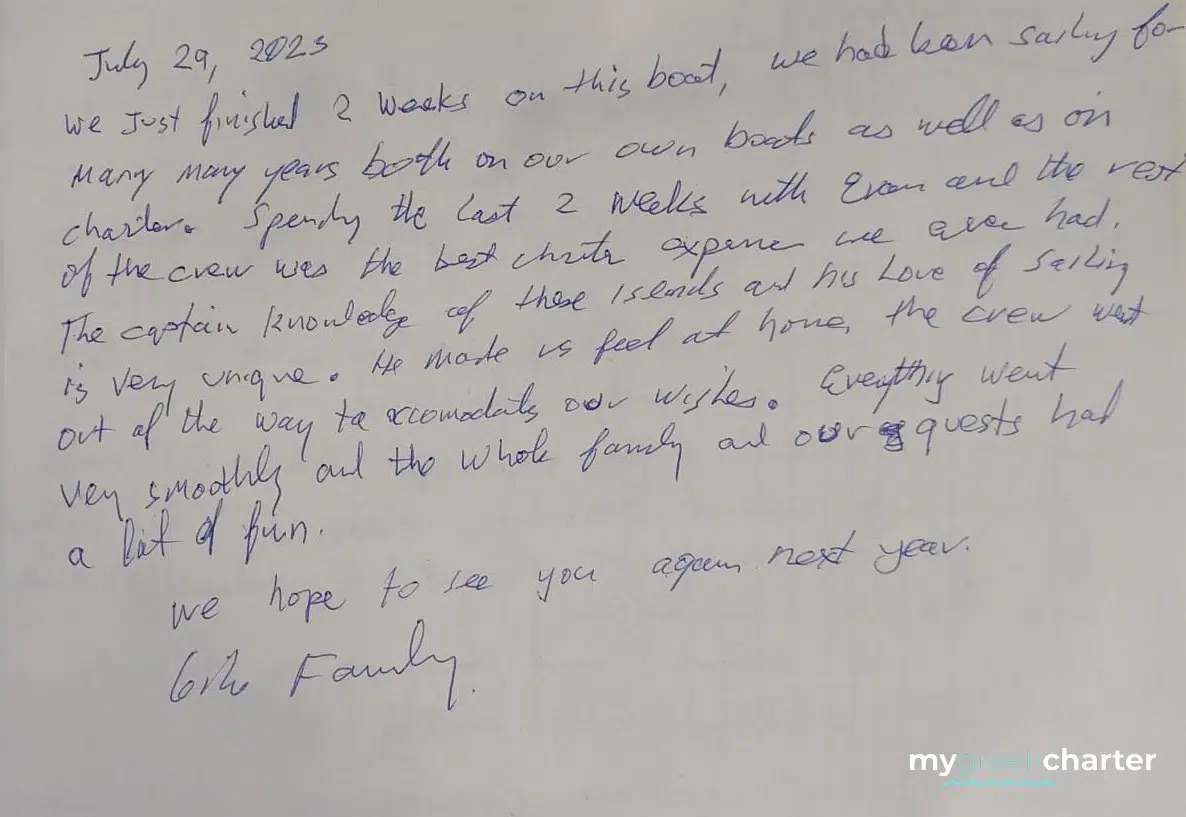 July 29, 2023
we Just finished 2 weeks on this boat, we had been sailing for
Many Many years both on our own boats as well as on
charter. Spending the last 2 weeks with and the rest
of the crew was the best charter experience we ever had.
The captain knowledge of these Islands and his Love of Sailing
is very unique. He made us feel at home, the crew went
out of the way to our wishes. Everything went
very smoothly and the whole family and our guests had
a lot of fun.
we hope to see you again next year.
Family
mygreekcharter